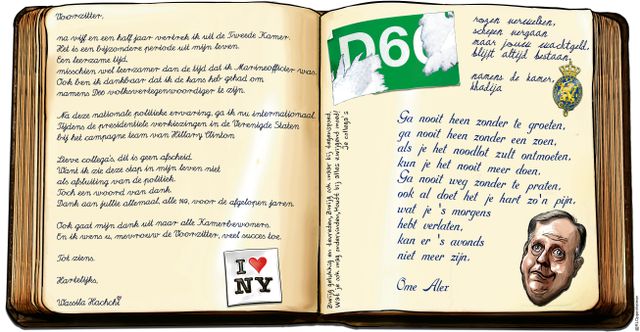 Voorzitter,
na vijf en een half jaar vertrek ik uit de Tweede Kamer.
Het is een bijzondere periode uit mijn leven.
Een leerzame tijd.
misschien wel leerzamer dan de tijd dat ik Marineofficier was.
Ook ben ik dankbaar dat ik de kans heb gehad om
namens D66 volksvertegenwoordiger te zijn.
Na deze nationale politieke ervaring, ga ik nu internationaal.
Tijdens de presidentiele verkiezingen in de Verenigde Staten
bij het campagne team van Hillary Clinton
Lieve collega's, dit is geen afscheid.
Want ik zie deze stap in mijn leven niet
als afsluiting van de politiek.
Toch een woord van dank.
Dank aan jullie allemaal, alle 149, voor de afgelopen jaren
Ook gaat mijn dank uit naar alle Kamerbewoners.
En ik wens u, mevrouw de Voorzitter, veel succes toe.
Tot ziens.
Hartelijks,
Wassila Hachchi
I ♥
NY
D66
de collega's
rozen verwelken,
schepen vergaan
maar jouw wachtgeld,
blijft altijd bestaan
namens de kamer,
khadija
Ga nooit heen zonder te groeten,
ga nooit heen zonder een zoen,
als je het noodlot zult ontmoeten,
kun je het nooit meer doen.
Ga nooit weg zonder te praten,
ook al doet het je hart zo'n pijn,
wat je 's morgens
hebt verlaten,
kan er 's avonds
niet meer zijn.
Ome Alex